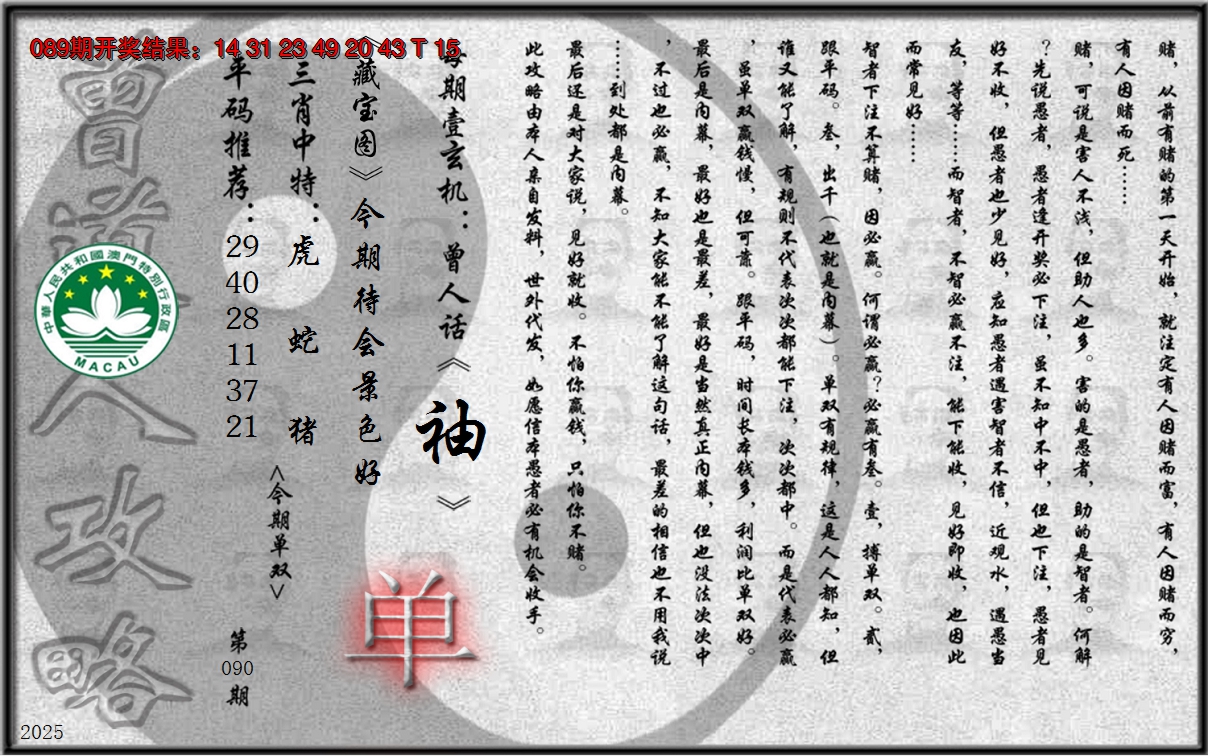 089期开奖结果：14 31 23 49 20 43 T 15
赌，从前有赌的第一天开始，就注定有人因赌而富，有人因赌而穷，
有人因赌而死……
赌，可说是害人不浅，但助人也多。害的是愚者，助的是智者。何解
？先说愚者，愚者逢开奖必下注，虽不知中不中，但也下注，愚者见
好不收，但愚者也少见好，应知愚者遇害智者不信，近观水，遇愚当
友，等等……而智者，不智必赢不注，能下能收，见好即收，也因此
而常见好……
智者下注不算赌，因必赢。何谓必赢？必赢有叁。壹，搏单双。贰，
跟平码。叁，出千（也就是内幕）。单双有规律，这是人人都知，但
谁又能了解，有规则不代表次次都能下注，次次都中。而是代表必赢
，虽单双赢钱慢，但可靠。跟平码，时间长本钱多，利润比单双好。
最后是内幕，最好也是最差，最好是当然真正内幕，但也没法次次中
，不过也必赢，不知大家能不能了解这句话，最差的相信也不用我说
……到处都是内幕。
最后还是对大家说，见好就收。不怕你赢钱，只怕你不赌。
此攻略由本人亲自发料，世外代发，如愿信本愚者必有机会收手。
每期壹玄机：曾人话《袖》
《藏宝图》今期待会景色好
三肖中特：虎 蛇 猪
平码推荐：
29
40
28
11
37
21
<今期单双>
单
第
090
期
曾道人攻略
中華人民共和國澳門特別行政區
MACAU
2025